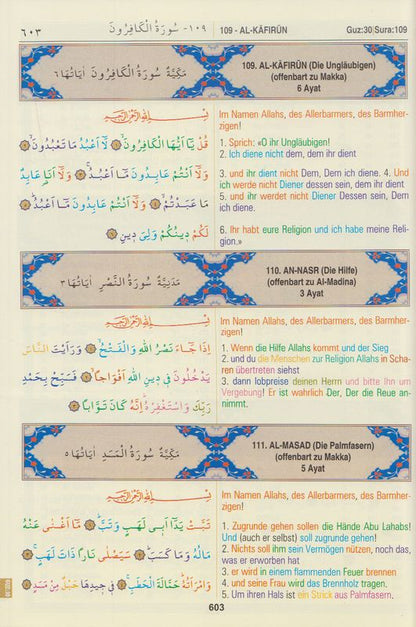 ٦٠٣
١٠٩- سُورَةُ الْكَافِرُونَ
109 - AL-KĀFIRŪN
Guz:30|Sura:109
مَكِّيَّةٌ سُورَةُ الْكَافِرُونَ اٰيَاتُهَا ٦
109. AL-KĀFIRŪN (Die Ungläubigen)
(offenbart zu Makka)
6 Ayat
بِسْمِ اللّٰهِ الرَّحْمٰنِ الرَّحِيمِ
قُلْ يَٓا اَيُّهَا الْكَافِرُونَۙ ١ لَٓا اَعْبُدُ مَا تَعْبُدُونَۙ ٢
وَلَٓا اَنْتُمْ عَابِدُونَ مَٓا اَعْبُدُۚ ٣ وَلَٓا اَنَا۬ عَابِدٌ
مَا عَبَدْتُمْۙ ٤ وَلَٓا اَنْتُمْ عَابِدُونَ مَٓا اَعْبُدُۜ ٥
لَكُمْ دِينُكُمْ وَلِيَ دِينِ ٦
Im Namen Allahs, des Allerbarmers, des Barmher-
zigen!
1. Sprich: «O ihr Ungläubigen!
2. Ich diene nicht dem, dem ihr dient
3. und ihr dient nicht Dem, Dem ich diene. 4. Und
ich werde nicht Diener dessen sein, dem ihr dient
5. und ihr werdet nicht Diener Dessen sein, Dem
ich diene.
6. Ihr habt eure Religion und ich habe meine Reli-
gion.»
مَدَنِيَّةٌ سُورَةُ النَّصْرِ اٰيَاتُهَا ٣
110. AN-NASR (Die Hilfe)
(offenbart zu Al-Madina)
3 Ayat
بِسْمِ اللّٰهِ الرَّحْمٰنِ الرَّحِيمِ
اِذَا جَٓاءَ نَصْرُ اللّٰهِ وَالْفَتْحُۙ ١ وَرَاَيْتَ النَّاسَ
يَدْخُلُونَ فِي دِينِ اللّٰهِ اَفْوَاجًاۙ ٢ فَسَبِّحْ بِحَمْدِ
رَبِّكَ وَاسْتَغْفِرْهُۜ اِنَّهُ كَانَ تَوَّابًا ٣
Im Namen Allahs, des Allerbarmers, des Barmher-
zigen!
1. Wenn die Hilfe Allahs kommt und der Sieg
2. und du die Menschen zur Religion Allahs in Scha-
ren übertreten siehst
3. dann lobpreise deinen Herrn und bitte Ihn um
Vergebung! Er ist wahrlich Der, Der die Reue an-
nimmt.
مَكِّيَّةٌ سُورَةُ الْمَسَدِ اٰيَاتُهَا ٥
111. AL-MASAD (Die Palmfasern)
(offenbart zu Makka)
5 Ayat
بِسْمِ اللّٰهِ الرَّحْمٰنِ الرَّحِيمِ
تَبَّتْ يَدَٓا اَبِي لَهَبٍ وَتَبَّۜ ١ مَٓا اَغْنٰى عَنْهُ
مَالُهُ وَمَا كَسَبَۜ ٢ سَيَصْلٰى نَارًا ذَاتَ لَهَبٍۚ ٣
وَامْرَاَتُهُۜ حَمَّالَةَ الْحَطَبِۚ ٤ فِي جِيدِهَا حَبْلٌ مِنْ مَسَدٍ ٥
Im Namen Allahs, des Allerbarmers, des Barmher-
zigen!
1. Zugrunde gehen sollen die Hände Abu Lahabs!
Und (auch er selbst) soll zugrunde gehen!
2. Nichts soll ihm sein Vermögen nützen, noch das,
was er erworben hat
3. er wird in einem flammenden Feuer brennen
4. und seine Frau wird das Brennholz tragen.
5. Um ihren Hals ist ein Strick aus Palmfasern.
603